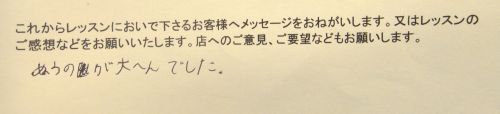 これからレッスンにおいで下さるお客様へメッセージをおねがいします。又はレッスンの
ご感想などをお願いいたします。店へのご意見、ご要望などもお願いします。
ぬうのが大へんでした。